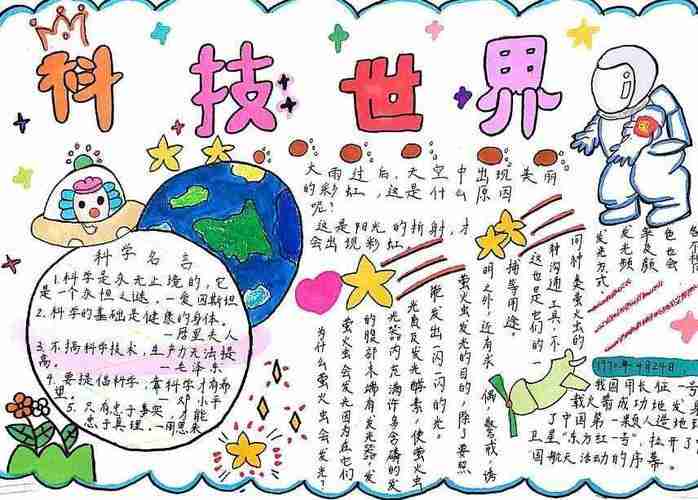 科技世界
大雨过后,天空中出现美丽
的彩虹,这是什么原因
呢?
这是阳光的折射,才
会出现彩虹。
科学名言
1.科学是永无止境的,它
是一个永恒之谜。—爱因斯坦
2.科学的基础是健康的身体。
—居里夫人
3.不搞科学技术,生产力无法提
高。—毛泽东
4.要提倡科学,靠科学才有希
望。—邓小平
5.只有忠于事实,才能
忠于真理。—周恩来
为什么萤火虫会发光?
萤火虫会发光因为在它们
的腹部末端有发光器,发
光器内充满许多含磷的发
光质及发光酵素,使萤火虫
能发出一闪一闪的光。
萤火虫发光的目的,除了要照
明之外,还有求偶,警戒,诱
捕等用途。
这也是它们的一
种沟通工具,不
同种类萤火虫的
发光方式
发光频
率及颜
色也会
1970年4月24日,
我国用长征一号
载火箭成功地发
了中国第一颗人造地
卫星"东方红一号",拉开了
国航天活动的序幕。